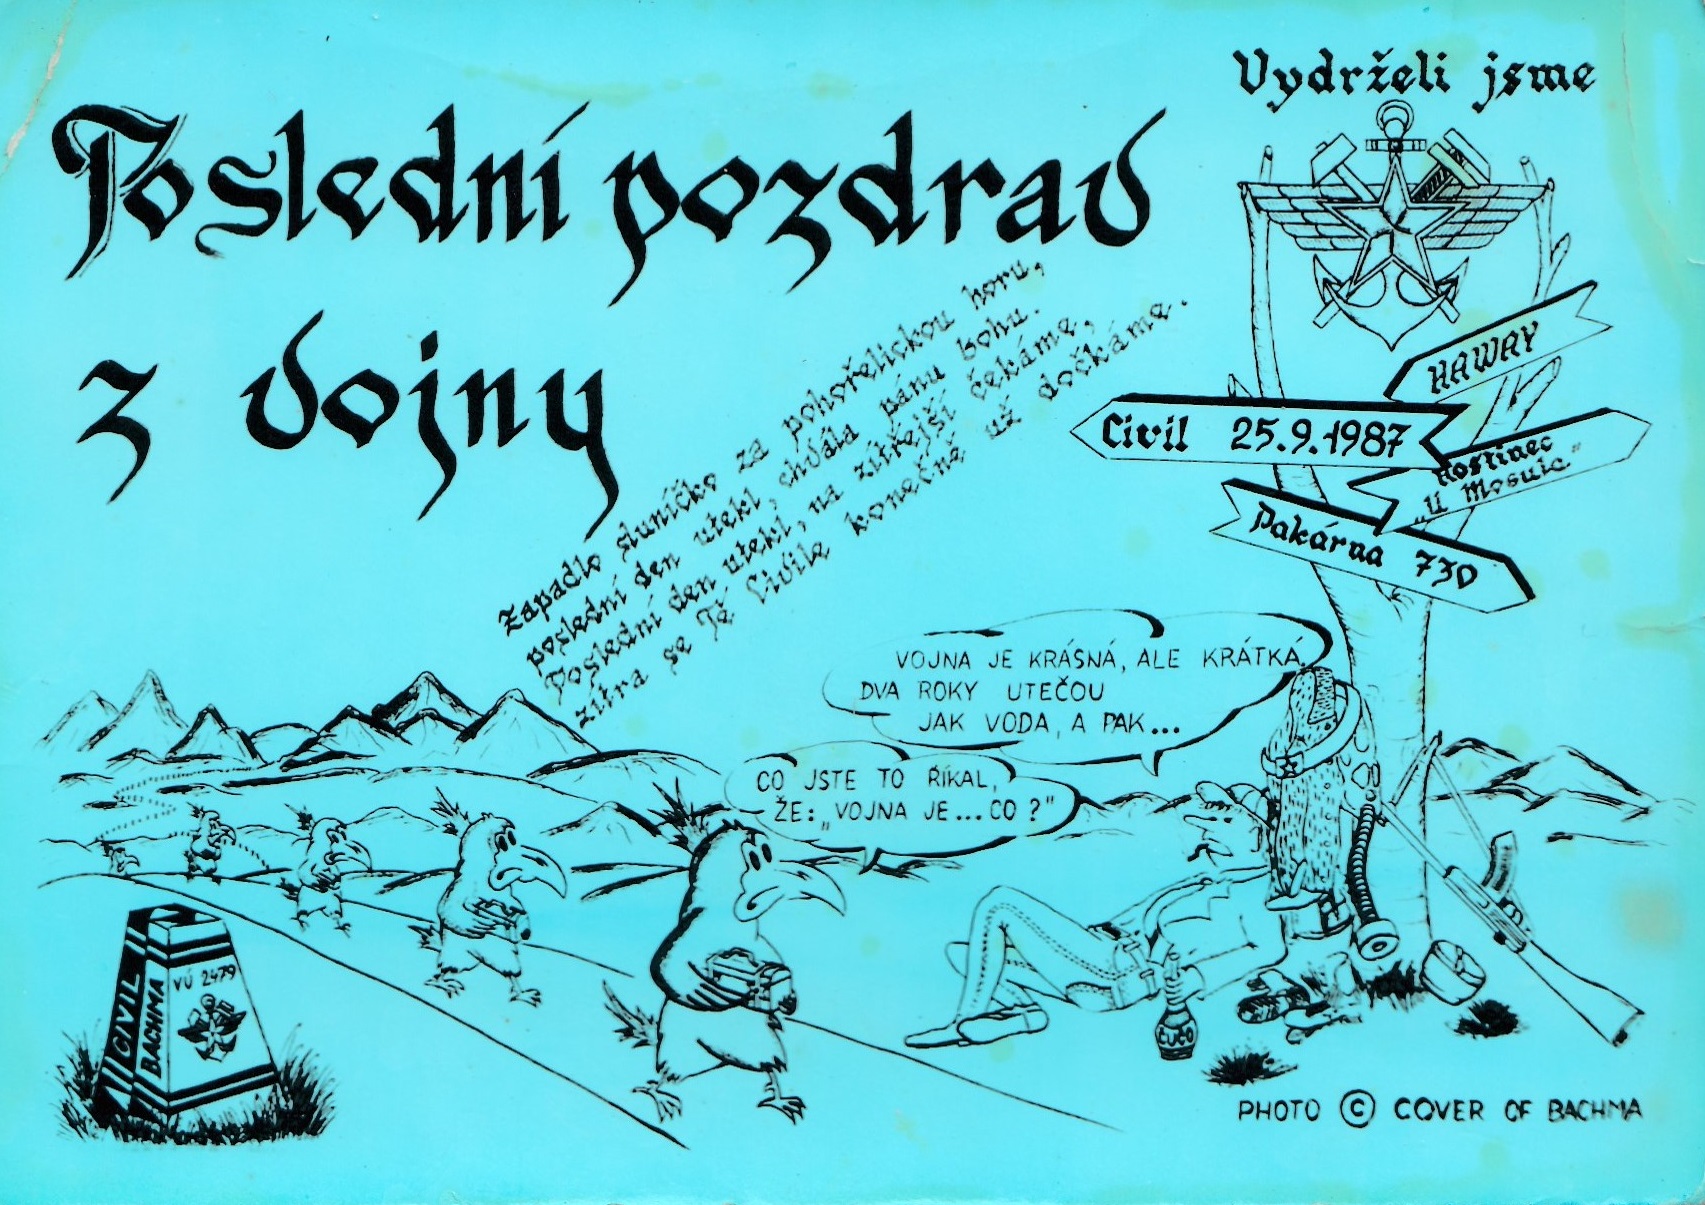 Vydrželi jsme
Poslední pozdrav
z vojny
Zapadlo sluníčko za pohořelickou horu,
poslední den utekl, chvála pánu bohu.
Poslední den utekl, na zítřejší čekáme,
zítra se Tě Civile konečně už dočkáme.
HAWAY
Civil 25.9.1987
Hostinec
„U Mosuic"
Pakárna 730
VOJNA JE KRÁSNÁ, ALE KRÁTKÁ.
DVA ROKY UTEČOU
JAK VODA, A PAK...
CO JSTE TO ŘÍKAL,
ŽE: „VOJNA JE...CO?"
CIVIL
BACHMA
VÚ 2479
ČUČO
PHOTO © COVER OF BACHMA